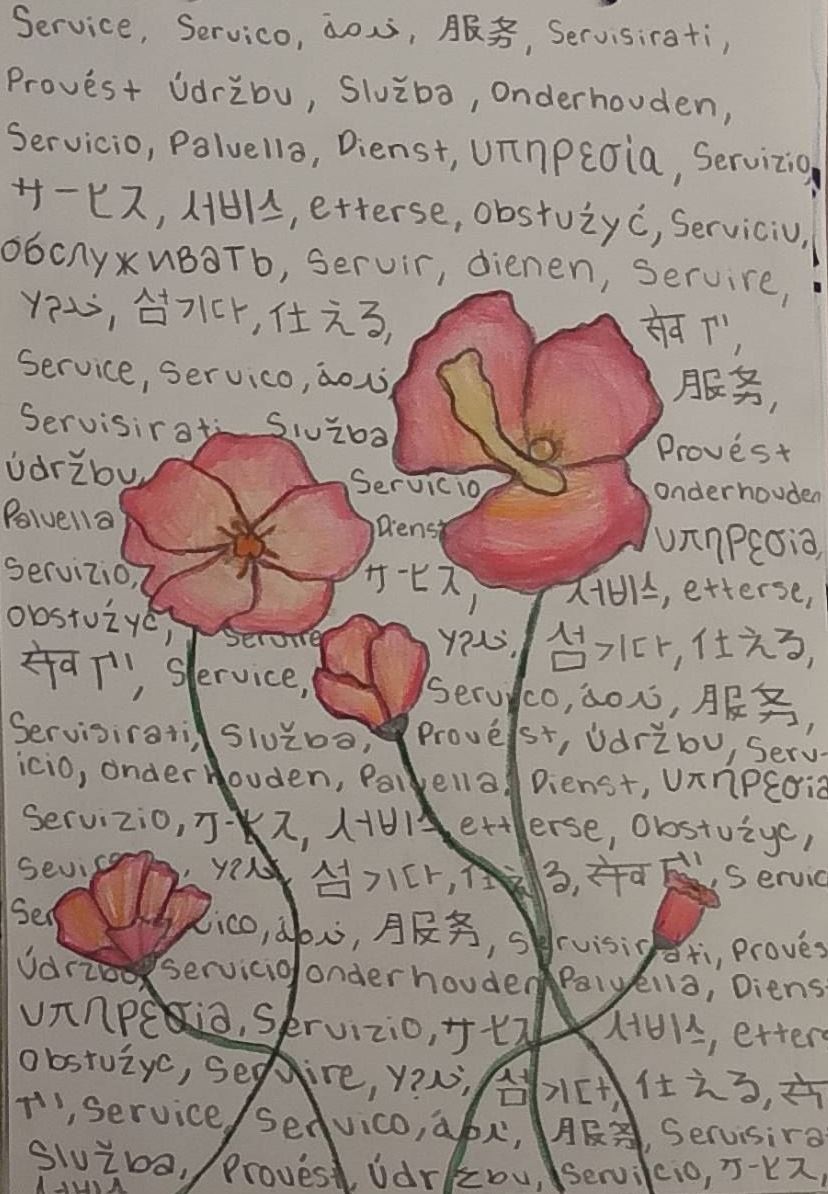 Service, Servico, 服务, Servisirati,
Provést Údržbu, Služba, Onderhouden,
Servicio, Palvella, Dienst, υπηρεσία, Servizio,
サービス, 서비스, etterse, Obstużyć, Serviciu,
обслуживать, Servir, dienen, Servire,
섬기다, 仕える,
Service, Servico, 服务,
Servisirati Služba Provést
Údržbu, Servicio onderhouden
Palvella Dienst υπηρεσία,
Servizio, サービス, 서비스, etterse,
Obstużyć, Servire 섬기다, 仕える,
Service, Servico, 服务,
Servisirati, Služba, Provést, Údržbu, Serv-
icio, Onderhouden, Palvella, Dienst, υπηρεσία
Servizio, サービス, 서비스, etterse, Obstużyc,
섬기다, 仕える, Servic
Servico, 服务, Servisirati, Provés
Údržbu, Servicio, onderhouden, Palvella, Diens
υπηρεσία, Servizio, サービス, 서비스, etters
Obstużyc, Servire, 섬기다, 仕える,
Service, Servico, 服务, Servisira
Služba, Provést, Údržbu, Servicio, サービス,